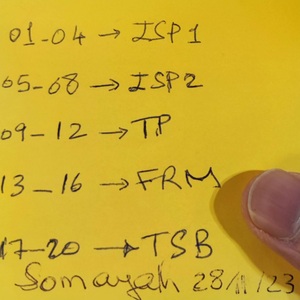 01-04 → ISP1
05-08 → ISP2
09-12 → TP
13-16 → FRM
17-20 → TSB
Somayah 28/11/23